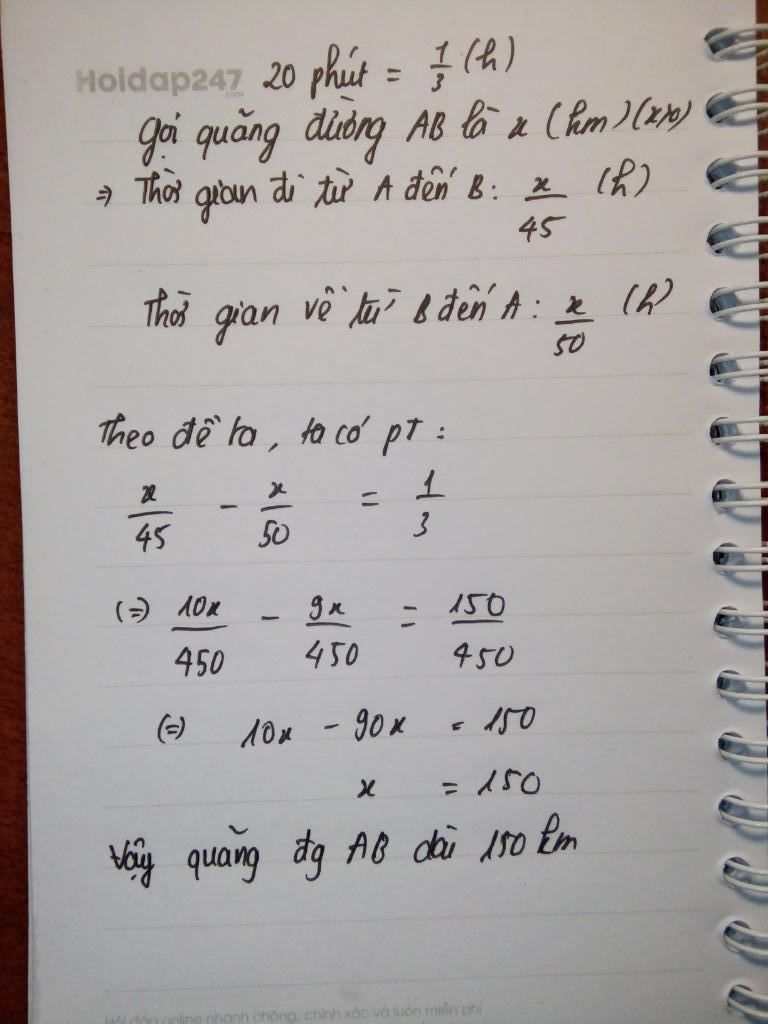 Hoidap247
.com
20 phút = 1/3 (h)
Gọi quãng đường AB là x (km) (x>0)
=> Thời gian đi từ A đến B: x/45 (h)
Thời gian về từ B đến A: x/50 (h)
Theo đề ra, ta có pT:
x/45 - x/50 = 1/3
(=) 10x/450 - 9x/450 = 150/450
(=) 10x - 90x = 150
x = 150
Vậy quãng đg AB dài 150 km
Hỏi đáp online nhanh chóng, chính xác và luôn miễn phí